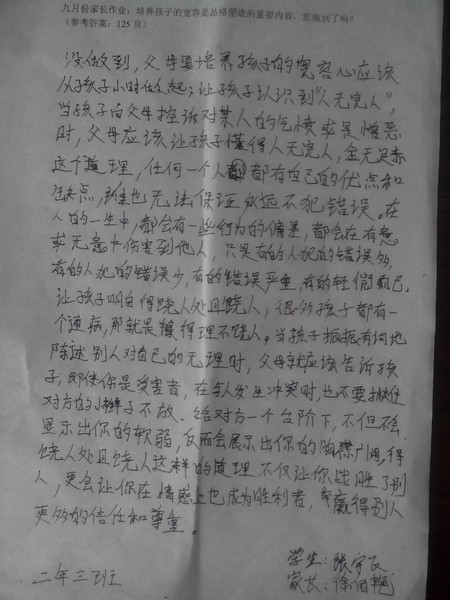 九月份家长作业：培养孩子的宽容是品格塑造的重要内容，您做到了吗？
（参考答案：125 页）
没做到，父母要培养孩子的宽容心应该
从孩子小时做起；让孩子认识到“人无完人”，
当孩子向父母控诉对某人的气愤或是憎恶
时，父母应该让孩子懂得人无完人，金无足赤
这个道理，任何一个人都有自己的优点和
缺点，谁也无法保证永远不犯错误。在
人的一生中，都会有一些行为的偏差，都会在有意
或无意中伤害到他人，只是有的人犯的错误多，
有的人犯的错误少，有的错误严重，有的轻微而已。
让孩子明白得饶人处且饶人，很多孩子都有一
个通病，那就是得理不饶人。当孩子振振有词地
陈述别人对自己的无理时，父母就应该告诉孩
子，即使你是受害者，在与人发生冲突时，也不要揪住
对方的小辫子不放，给对方一个台阶下，不但不会
显示出你的软弱，反而会展示出你的胸襟广阔，得
饶人处且饶人这样的道理不仅让你战胜了别
人，更会让你在情感上也成为胜利者，赢得别人
更多的信任和尊重。
学生：张宇
二年三班
家长：徐艳